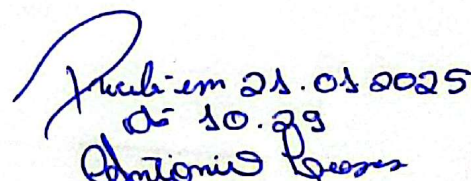 Recebi em 21.01.2025
às 10.29
Antonio